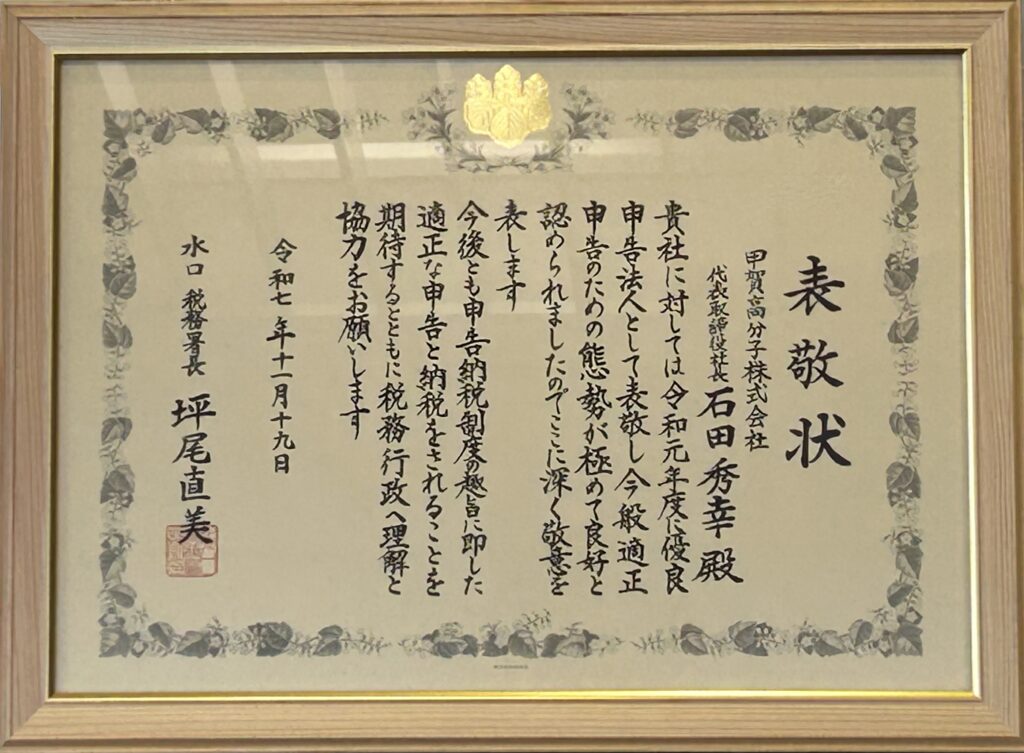 表敬状
甲賀高分子株式会社
代表取締役社長 石田秀幸 殿
貴社に対しては令和元年度に優良
申告法人として表敬し今般適正
申告のための態勢が極めて良好と
認められましたのでここに深く敬意を
表します
今後とも申告納税制度の趣旨に即した
適正な申告と納税をされることを
期待するとともに税務行政へ理解と
協力をお願いします
令和七年十一月十九日
水口税務署長 坪尾直美